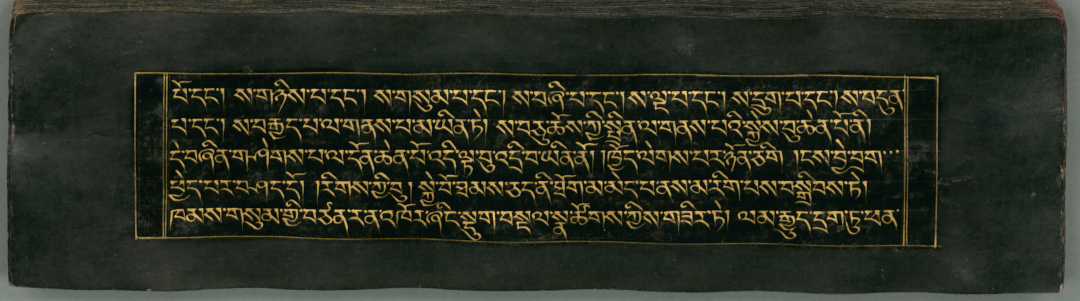 པོ་དང་། ས་གཉིས་པ་དང་། ས་གསུམ་པ་དང་། ས་བཞི་པ་དང་། ས་ལྔ་པ་དང་། ས་དྲུག་པ་དང་། ས་བདུན་
པ་དང་། ས་བརྒྱད་པ་ལ་གནས་པ་མ་ཡིན་ཏེ། ས་བཅུ་ཆོས་ཀྱི་སྤྲིན་ལ་གནས་པའི་སྐྱེས་བུ་ཆེན་པོ་ནི།
དེ་བཞིན་གཤེགས་པ་ལ་དོན་ཆེན་པོ་འདི་ལྟ་བུ་འདྲི་བ་ཡིན་ནོ། །ཁྱོད་ལེགས་པར་ཉོན་ཅིག །ངས་བྱེ་བྲག་
ཕྱེད་པར་བཤད་དོ། །རིགས་ཀྱི་བུ། སྐྱེ་བོ་ཐམས་ཅད་ནི་ཐོག་མ་མེད་པ་ནས་མ་རིག་པས་བསྒྲིབས་ཏེ།
ཁམས་གསུམ་གྱི་བཙོན་ར་ན་འཁོར་ཞིང་སྡུག་བསྔལ་སྣ་ཚོགས་ཀྱིས་གཟིར་ཏེ། ལམ་རྒྱུད་དྲག་ཏུ་ཕན་